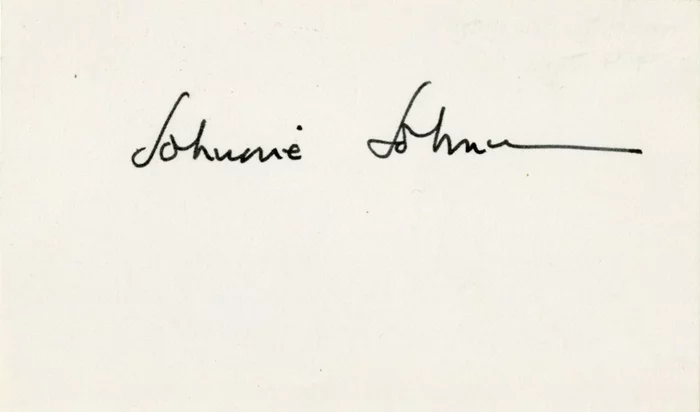 Johnnie Johnson